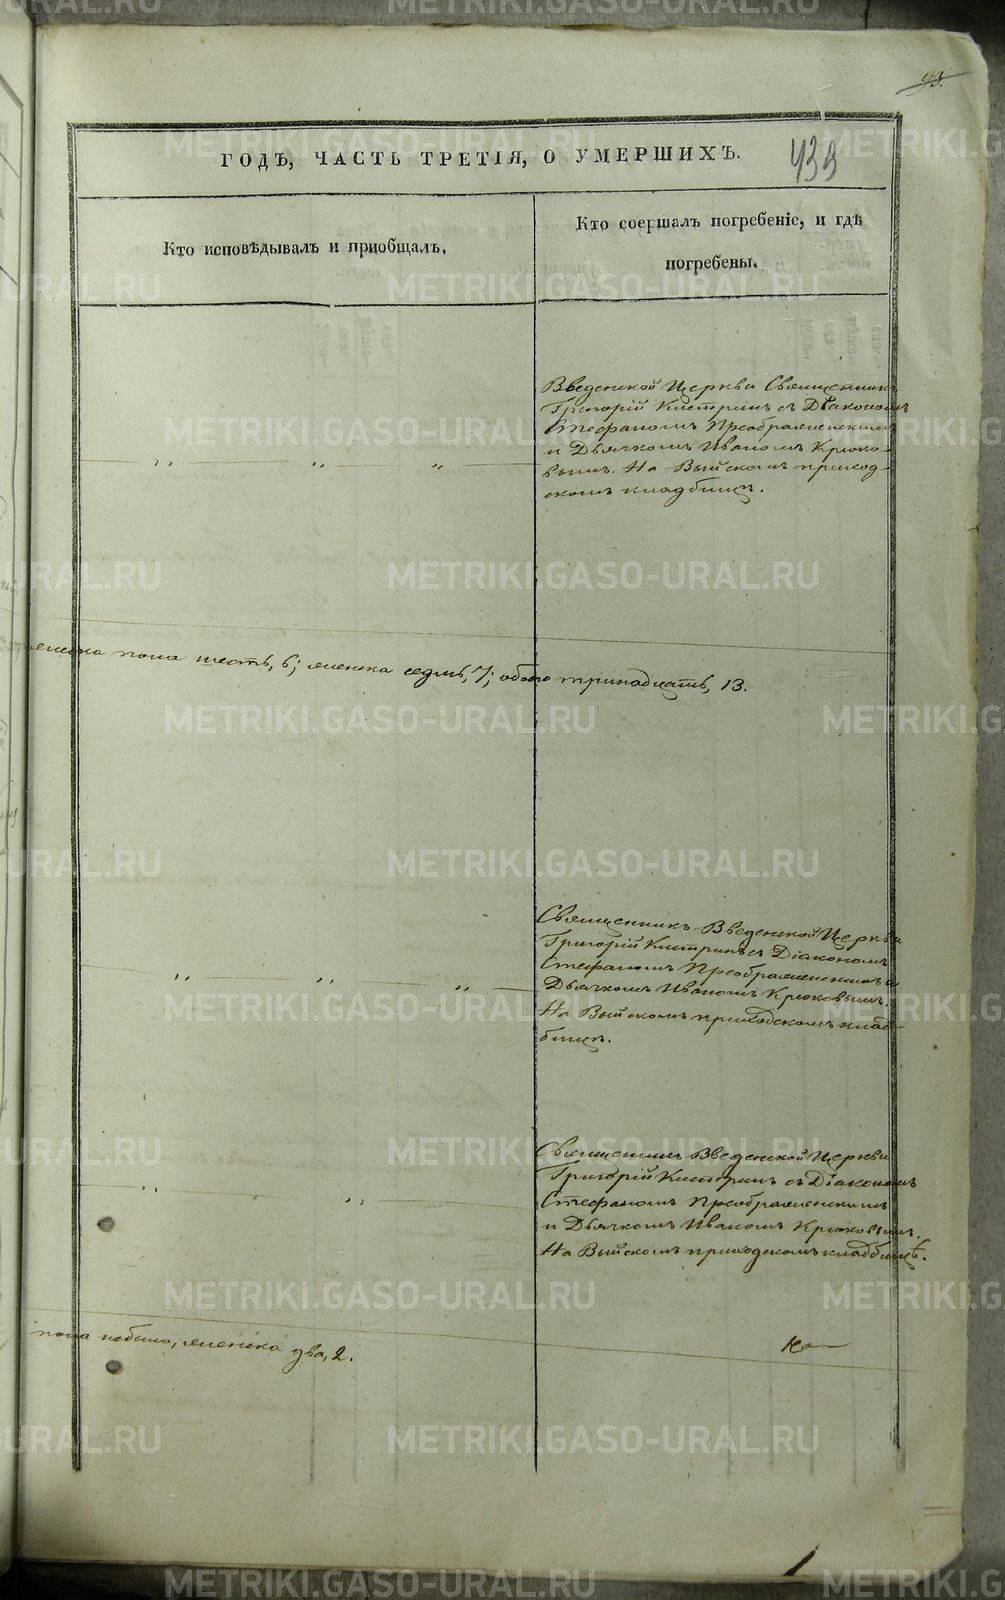 93.
439
ГОДЪ, ЧАСТЬ ТРЕТІЯ, О УМЕРШИХЪ.
Кто исповѣдывалъ и пріобщалъ.
Кто соершалъ погребеніе, и гдѣ
погребены.
Введенской Церкви Священникъ
Григорій Кистринъ съ Діакономъ
Стефаномъ Преображенскимъ
и Дьячкомъ Иваномъ Крюко-
вымъ. На Выйскомъ приход-
скомъ кладбищѣ.
" " "
женска пола шесть, 6; женска седмь, 7; обоего тринадцать, 13.
Священникъ Введенской Церкви
Григорій Кистринъ съ Діакономъ
Стефаномъ Преображенскимъ и
Дьячкомъ Иваномъ Крюковымъ.
На Выйскомъ приходскомъ клад-
бищѣ.
" " "
Священникъ Введенской Церкви
Григорій Кистринъ съ Діакономъ
Стефаномъ Преображенскимъ
и Дьячкомъ Иваномъ Крюковымъ.
На Выйскомъ приходскомъ кладбищѣ.
" "
пола небыло, женска два, 2.
METRIKI.GASO-URAL.RU